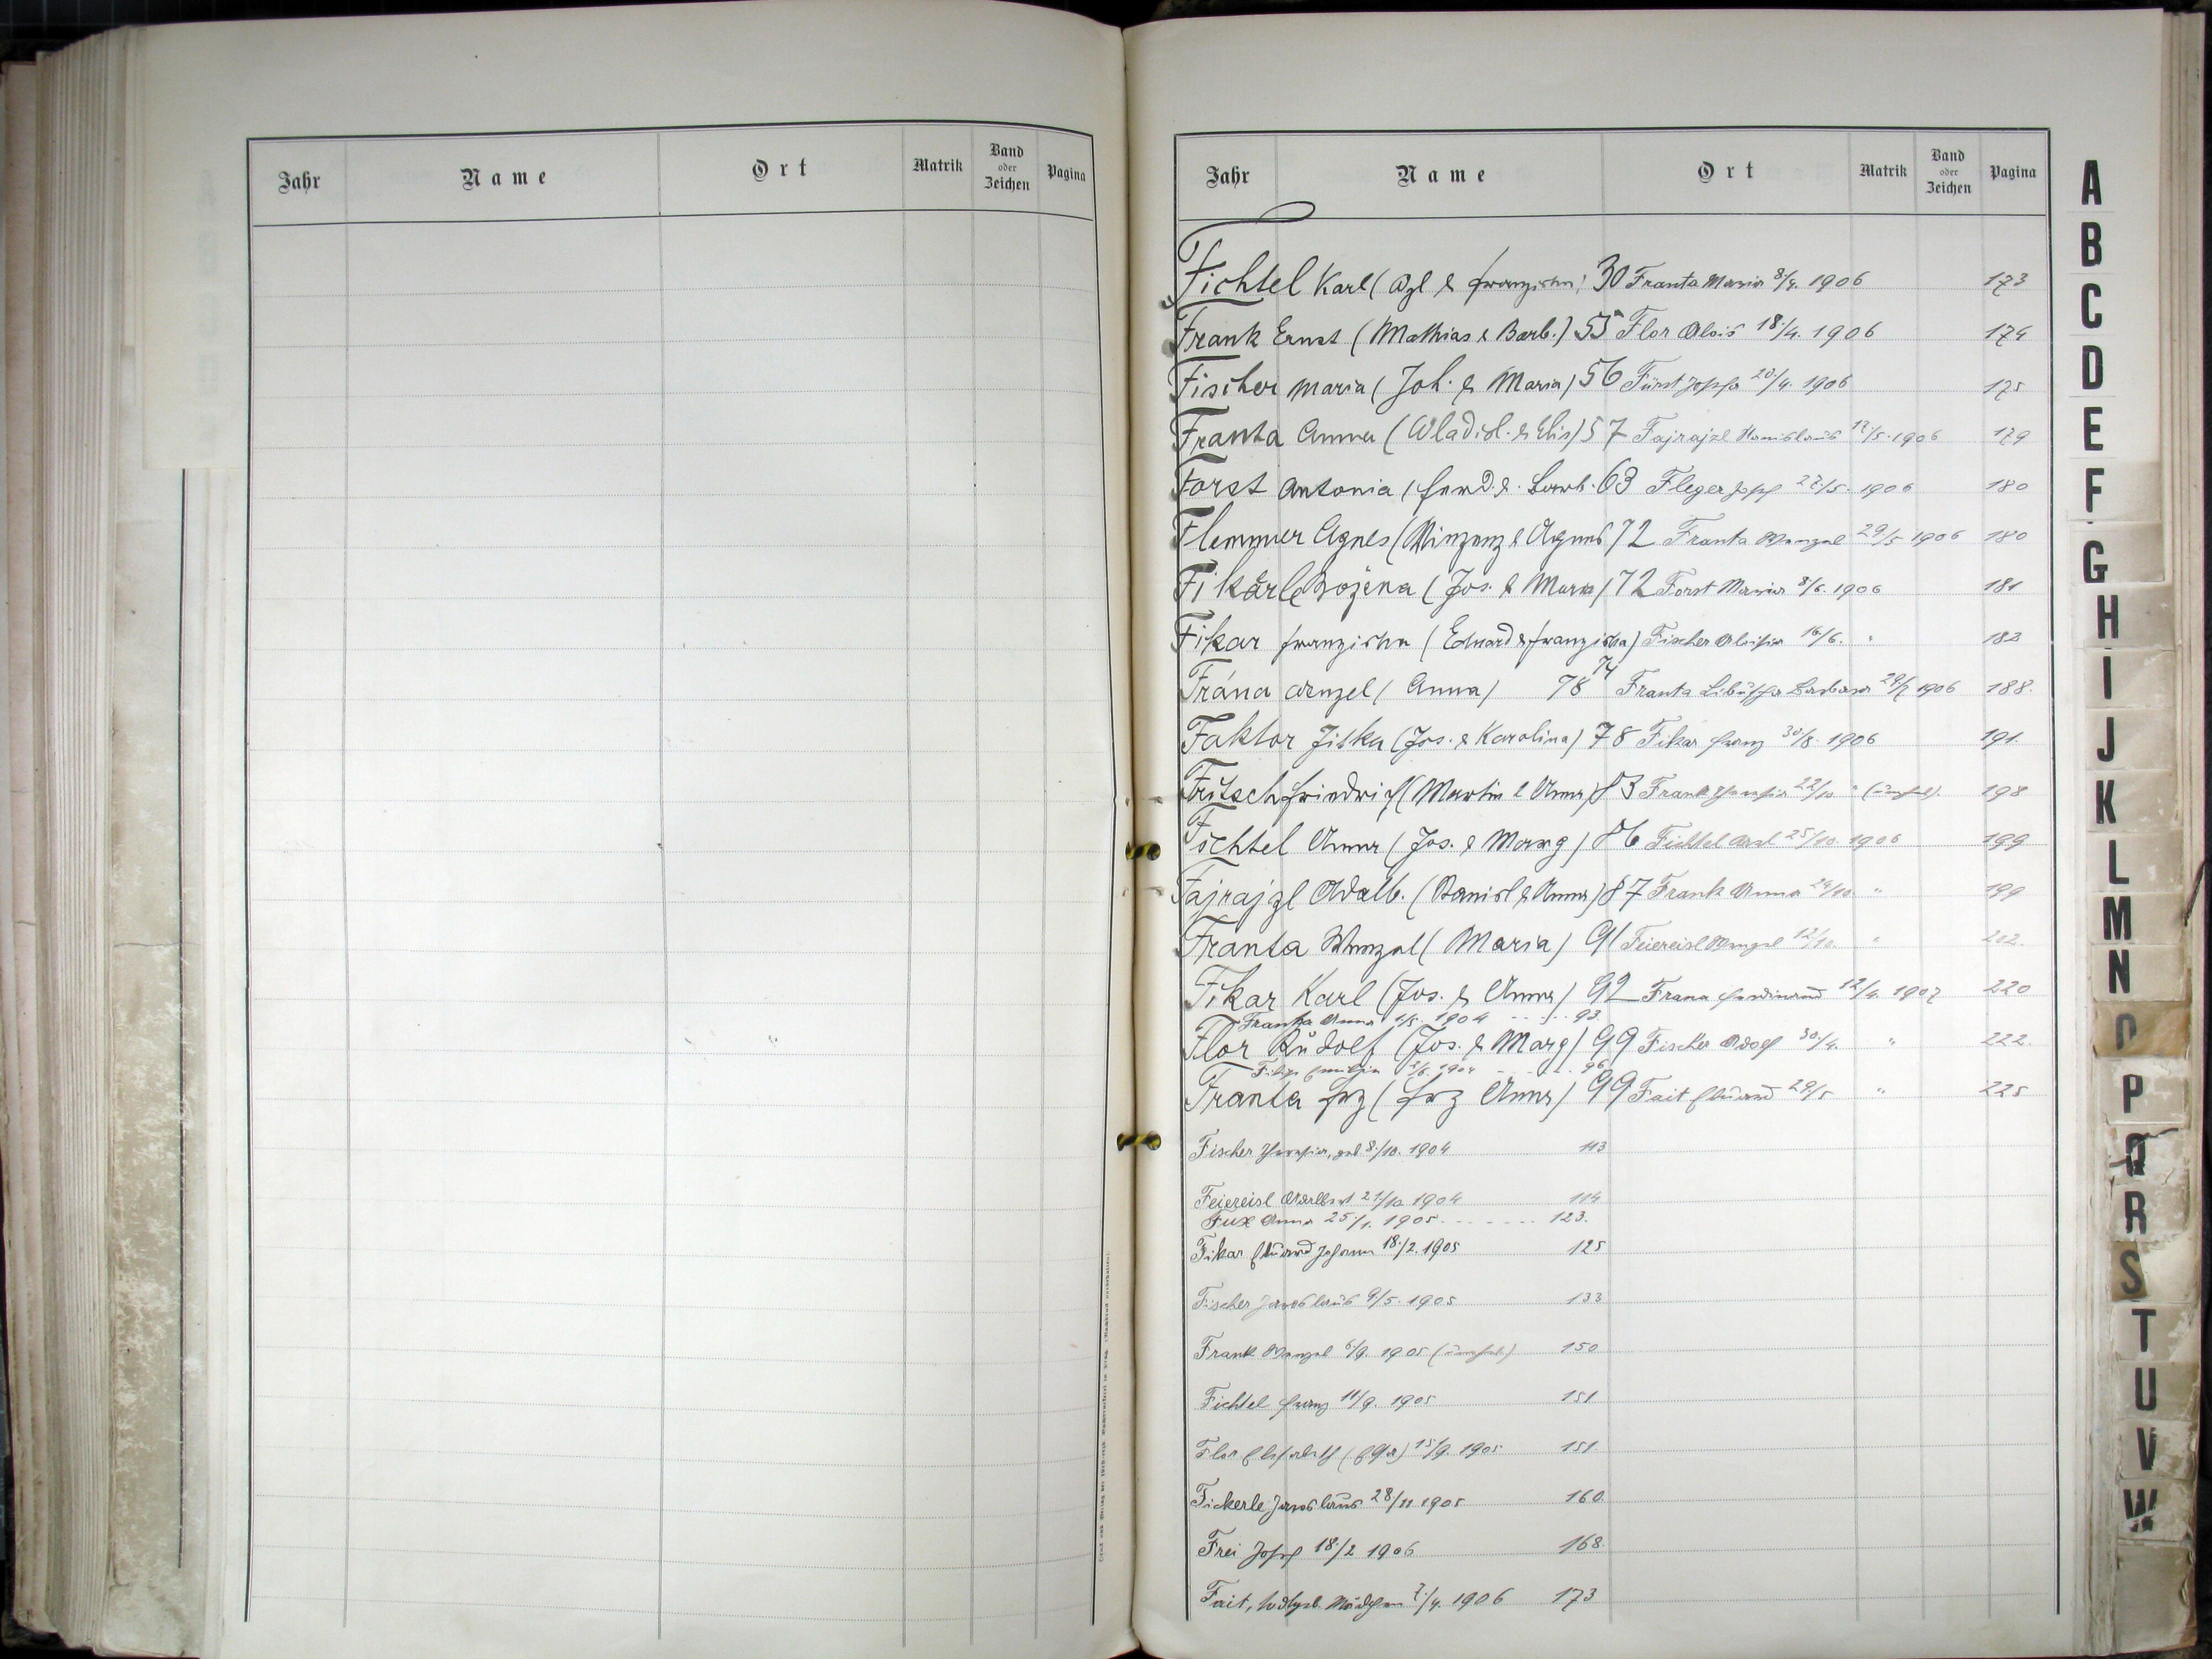 Jahr Name Ort Matrik Band oder Zeichen Pagina
Jahr Name Ort Matrik Band oder Zeichen Pagina
Fichtel Karl ( & Franziska) 30 Franta Maria 8/4. 1906 173
Frank Ernst (Mathias & Barb.) 55 Flor Alois 18/4. 1906 174
Fischer Maria (Joh. & Maria) 56 Fürst Josefa 20/4. 1906 175
Franta Anna (Wladisl. & Elis) 57 Fajrajzl Stanislaus 12/5. 1906 179
Forst Antonia (Ferd. & Barb. 63 Fleger Josef 27/5. 1906 180
Flemmer Agnes (Vinzenz & Agnes) 72 Franta Wenzel 29/5 1906 180
Fikärle Božena (Jos. & Maria) 72 Forst Maria 8/6. 1906 181
Fikar Franziska (Eduard & Franziska) 74 Fischer Aloisia 16/6. " 182
Frána Wenzel (Anna) 78 Franta Libuscha Barbara 29/7 1906 188.
Faktor Jitka (Jos. & Karolina) 78 Fikar Franz 30/8. 1906 191.
Fritsch Friedrich (Martin & Anna) 83 Frank Theresia 22/10 " (unehel.) 198
Fichtel Anna (Jos. & Marg) 86 Fichtel Karl 25/10. 1906 199
Fajrajzl Adalb. (Stanisl & Anna) 87 Frank Anna 24/10. " 199
Franta Wenzel (Maria) 91 Feiereisl Wenzel 12/10. " 202.
Fikar Karl (Jos. & Anna) 92 Frana Ferdinand 12/4. 1907 220
Franta Anna 1/5. 1904 93.
Flor Rudolf (Jos. & Marg) 99 Fischer Adolf 30/4. " 222.
Filip Emilia 2/6. 1904 96
Franta Frz (Frz Anna) 99 Fait Eduard 29/5 " 225
Fischer Theresia, geb 8/10. 1904 113
Feiereisl Adalbert 21/10. 1904 114
Fux Anna 25/1. 1905 123.
Fikar Eduard Johann 18/2. 1905 125
Fischer Jaroslaus 9/5. 1905 133
Frank Wenzel 6/9. 1905 (unehel.) 150
Fichtel Franz 11/9. 1905 151
Flor Elisabeth 15/9. 1905 151
Fickerle Jaroslaus 28/11 1905 160.
Frei Josef 18/2 1906 168.
Fait, todtgeb. Mädchen 7/4. 1906 173
A
B
C
D
E
F
G
H
I
J
K
L
M
N
O
P
Q
R
S
T
U
V
W